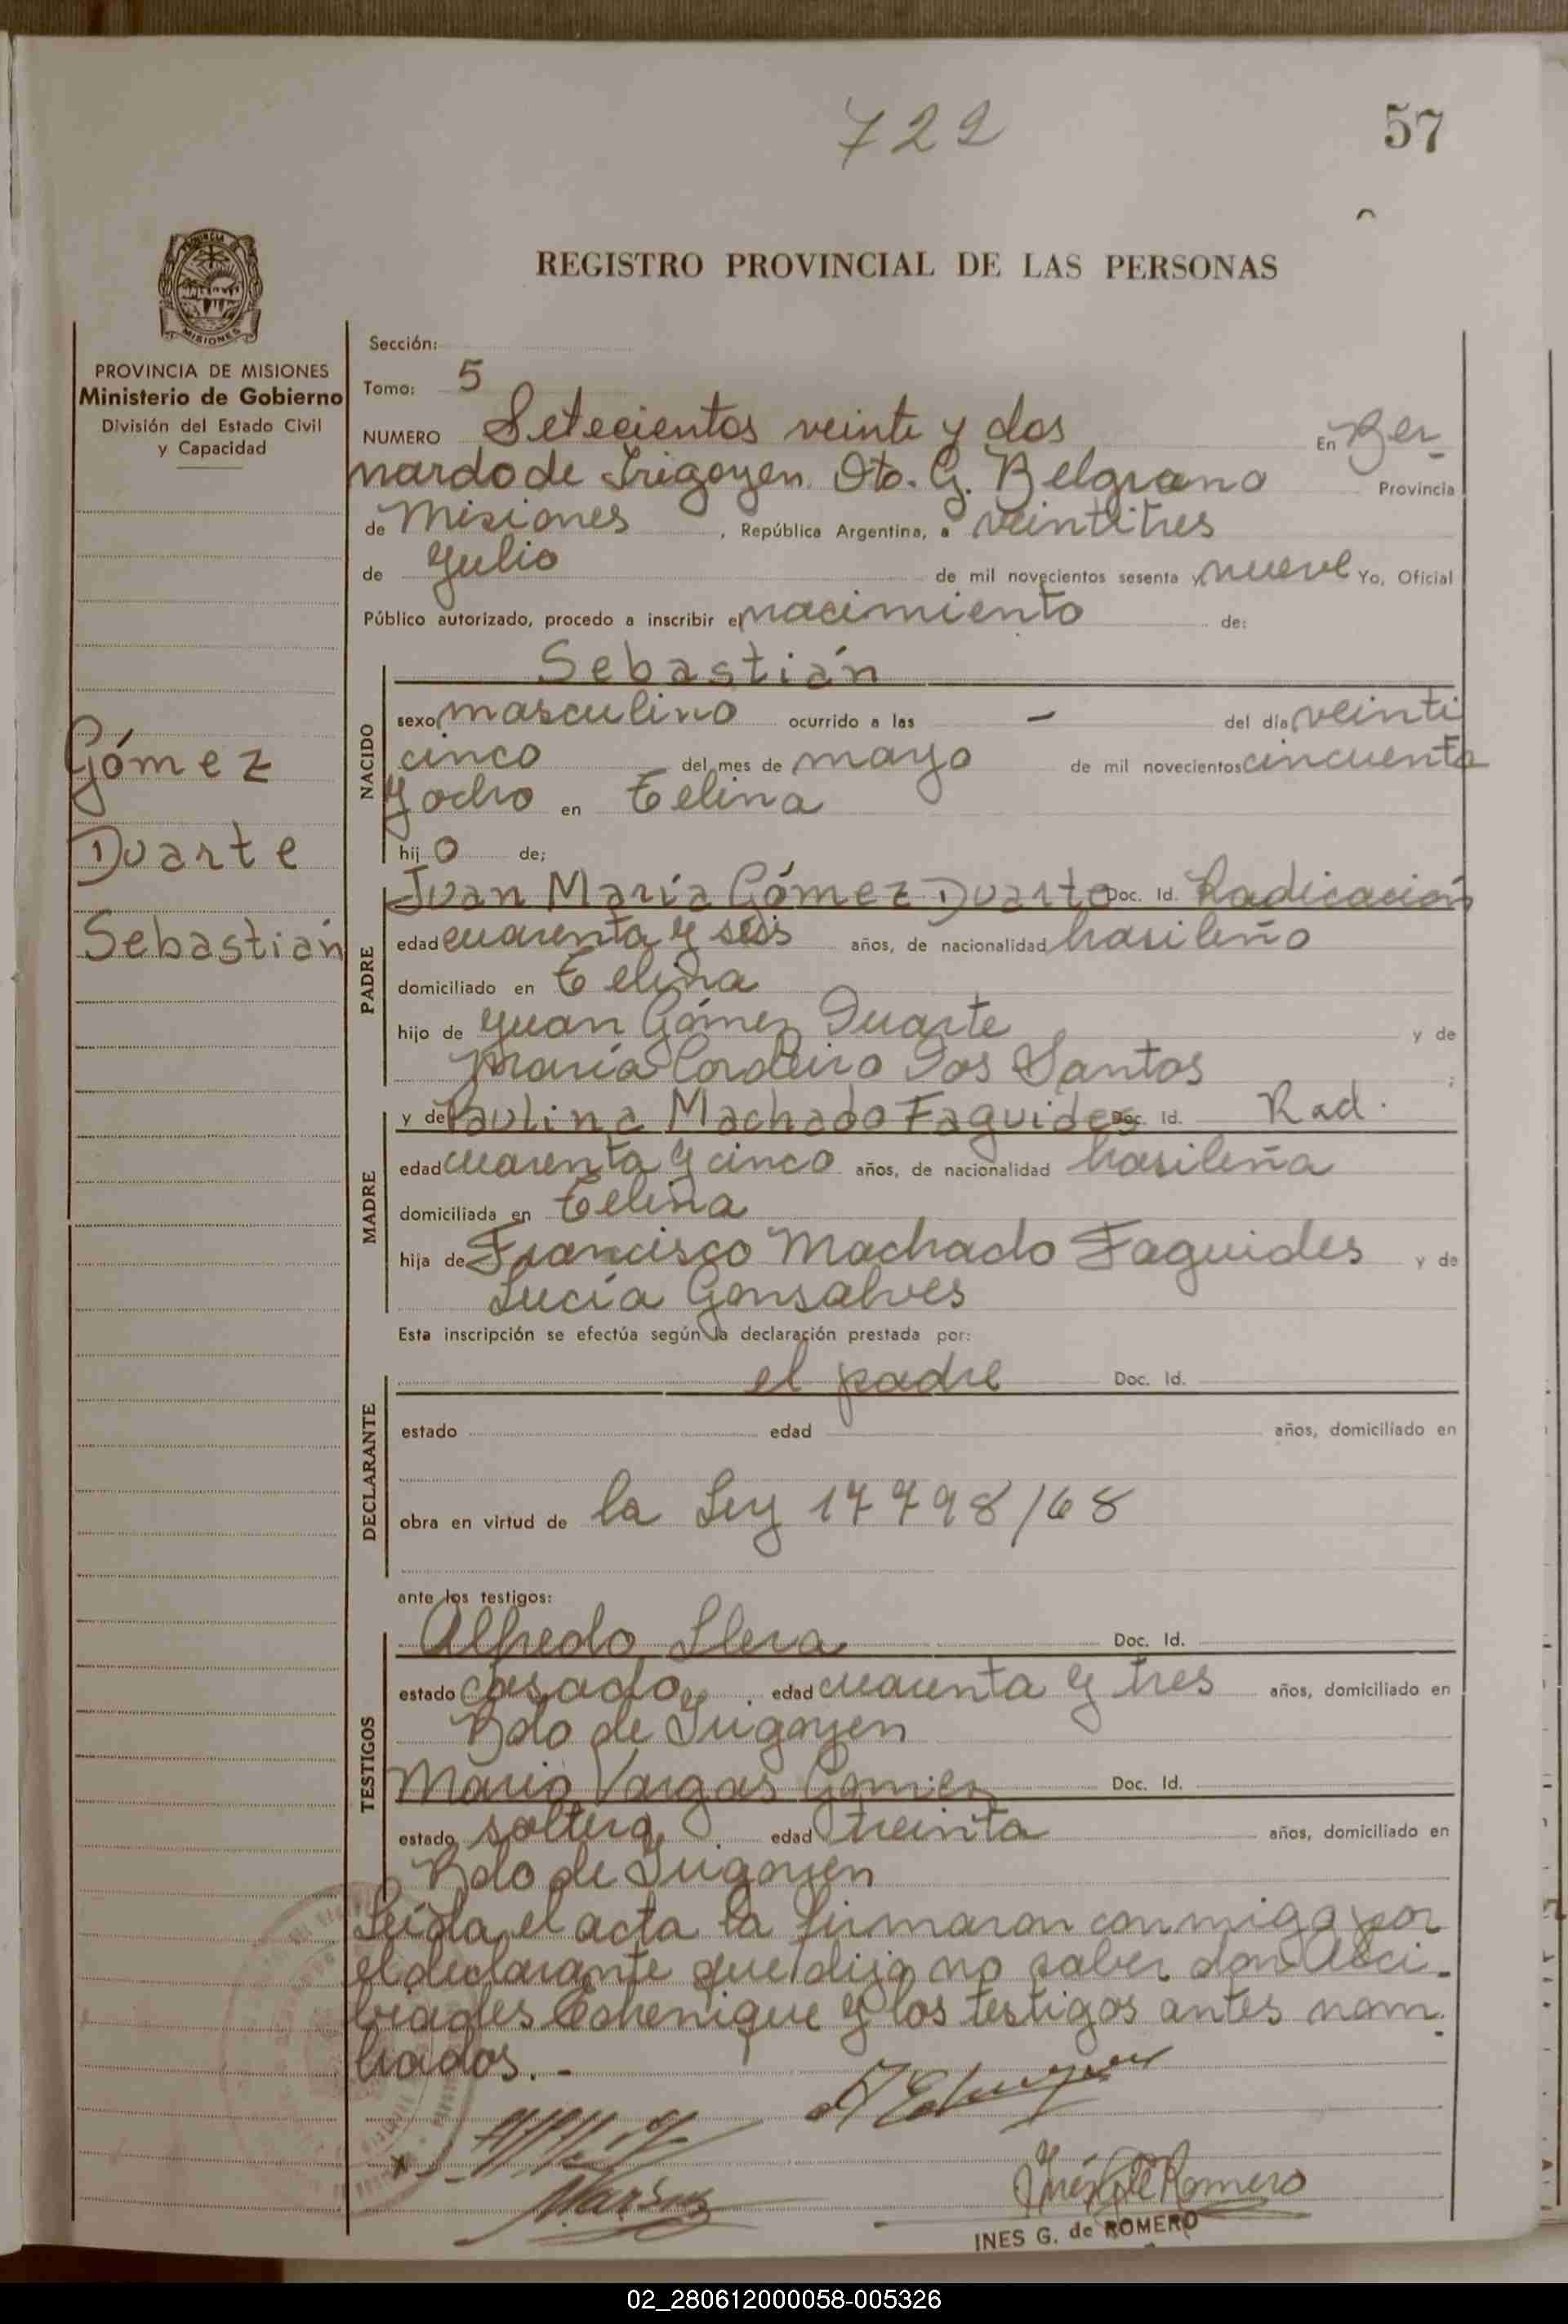 722
57
REGISTRO PROVINCIAL DE LAS PERSONAS
PROVINCIA DE MISIONES
Ministerio de Gobierno
División del Estado Civil
y Capacidad
Gómez
Duarte
Sebastián
Sección:
Tomo: 5
NUMERO Setecientos veinte y dos En Ber-
nardo de Irigoyen. Dto. G. Belgrano Provincia
de Misiones, República Argentina, a veintitres
de Julio de mil novecientos sesenta y nueve Yo, Oficial
Público autorizado, procedo a inscribir el nacimiento de:
NACIDO
Sebastián
sexo masculino ocurrido a las - del día veinti
cinco del mes de mayo de mil novecientos cincuenta
y ocho en Celina
hijo de;
PADRE
Juan María Gómez Duarte Doc. Id. Radicación
edad cuarenta y seis años, de nacionalidad brasileño
domiciliado en Celina
hijo de Juan Gómez Duarte y de
María Cordeiro Dos Santos ;
MADRE
y de Paulina Machado Faguides Doc. Id. Rad.
edad cuarenta y cinco años, de nacionalidad brasileña
domiciliada en Celina
hija de Francisco Machado Faguides y de
Lucía Gonsalves
Esta inscripción se efectúa según la declaración prestada por:
DECLARANTE
el padre Doc. Id.
estado edad años, domiciliado en
obra en virtud de la Ley 17798/68
ante los testigos:
TESTIGOS
Alfredo Llera Doc. Id.
estado casado, edad cuarenta y tres años, domiciliado en
Bdo de Irigoyen
Mario Vargas Gomez Doc. Id.
estado soltero, edad treinta años, domiciliado en
Bdo de Irigoyen
Leída el acta la firmaron conmigo por
el declarante que dijo no saber don Alci-
biades Echenique y los testigos antes nom-
brados.-
Inés G de Romero
INES G. de ROMERO
02_280612000058-005326